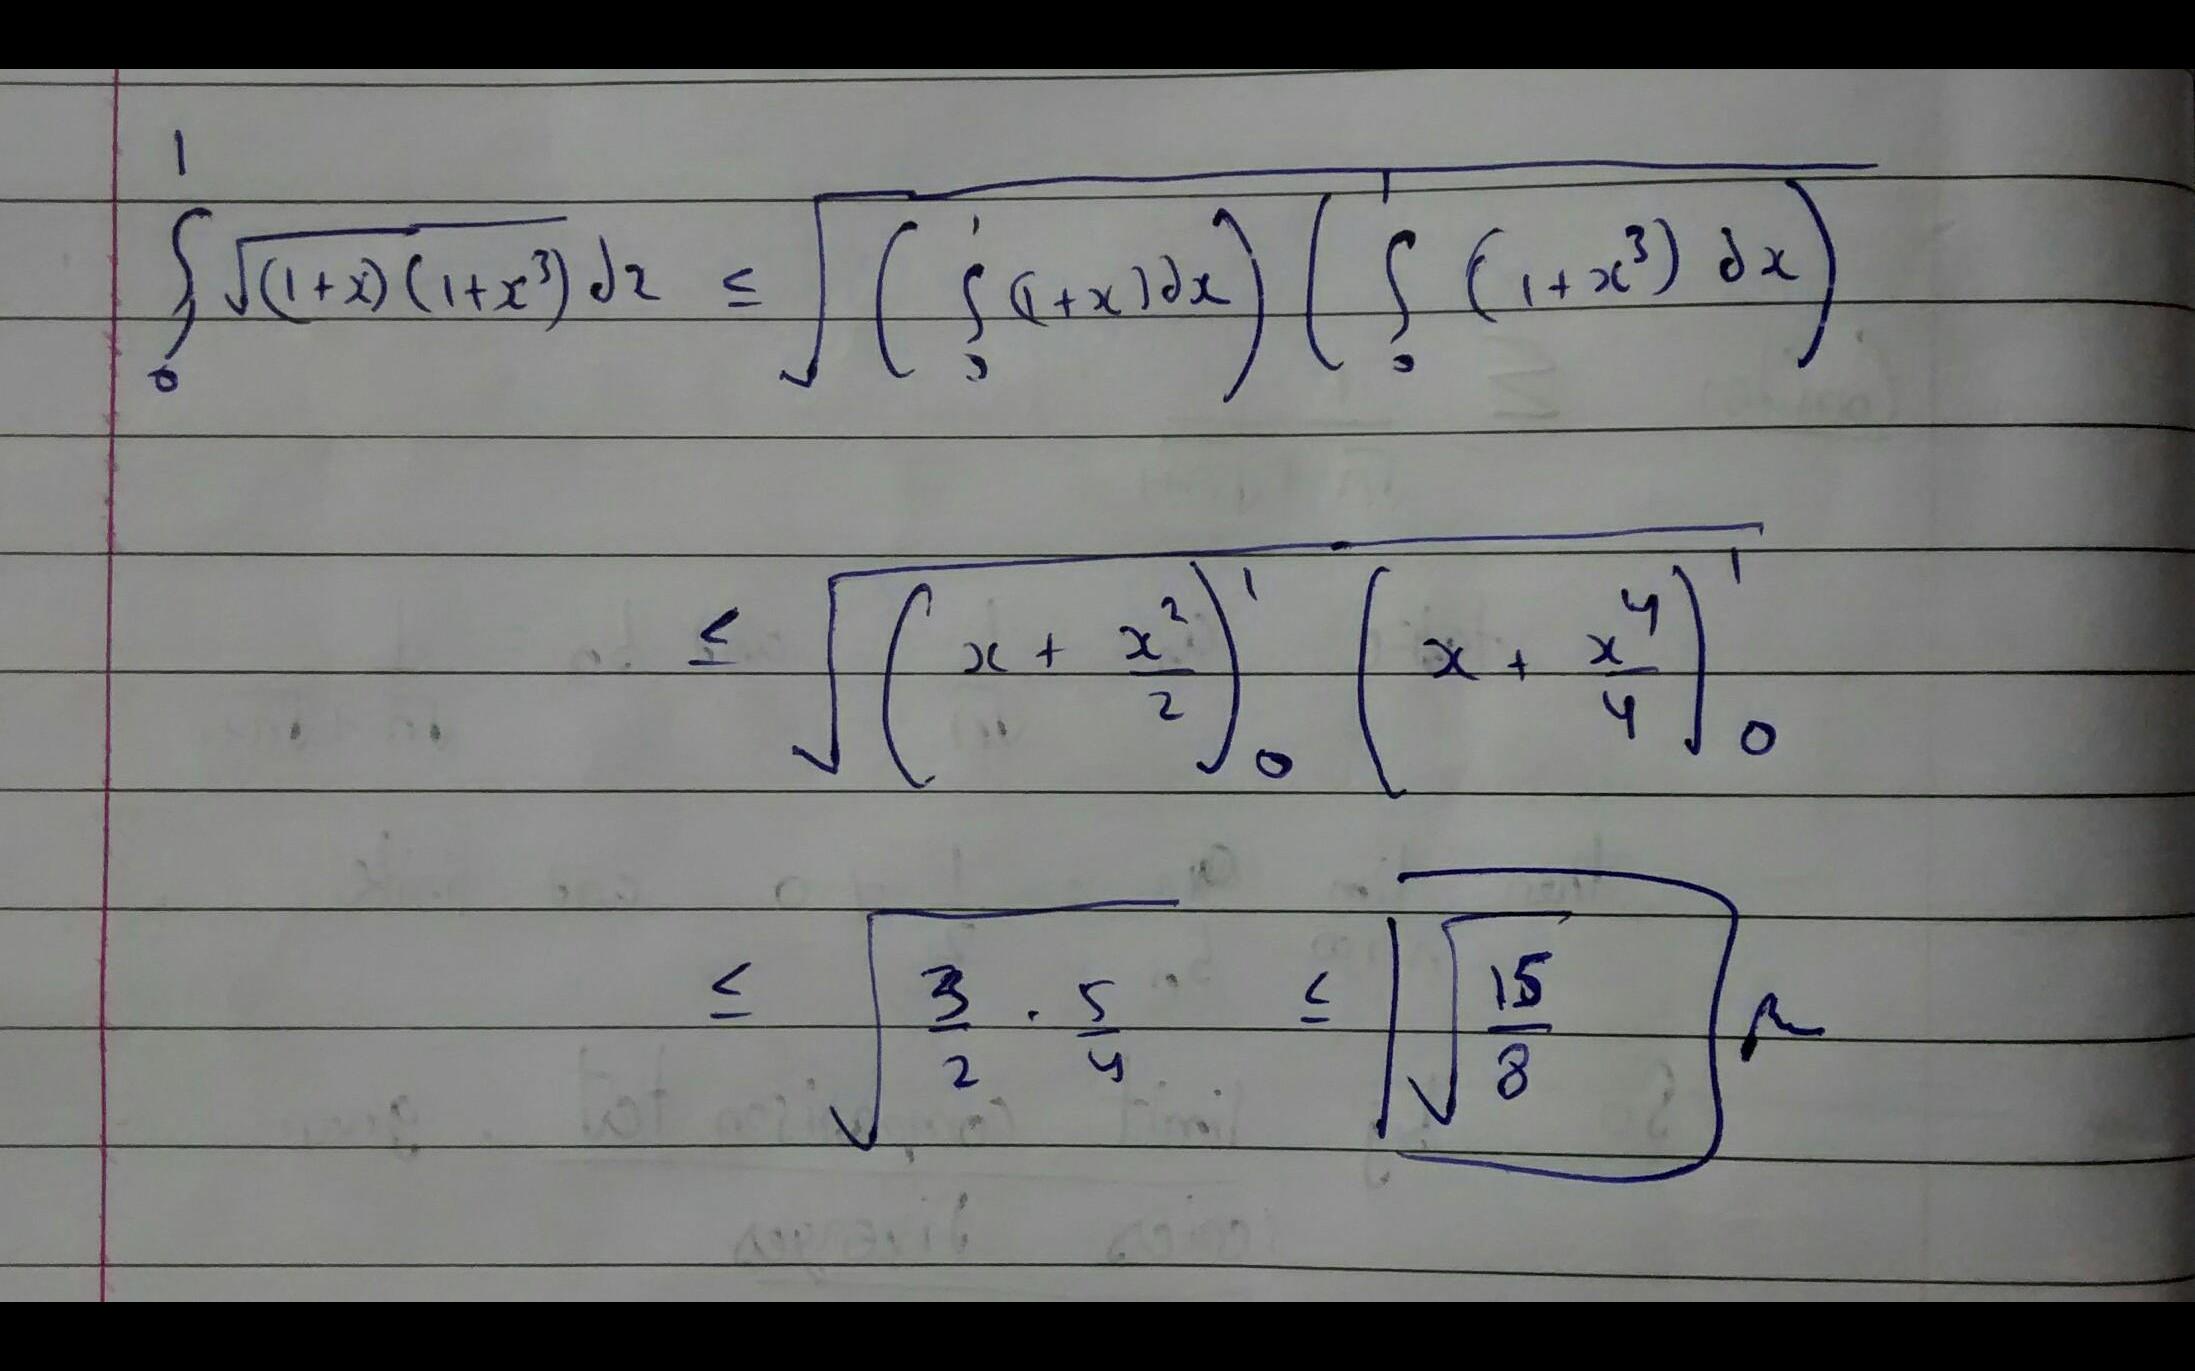 ∫₀¹ √((1+x)(1+x³)) dx ≤ √((∫₀¹ (1+x)dx) (∫₀¹ (1+x³) dx))
≤ √((x + x²/2)₀¹ (x + x⁴/4)₀¹)
≤ √(3/2 · 5/4) ≤ √(15/8)